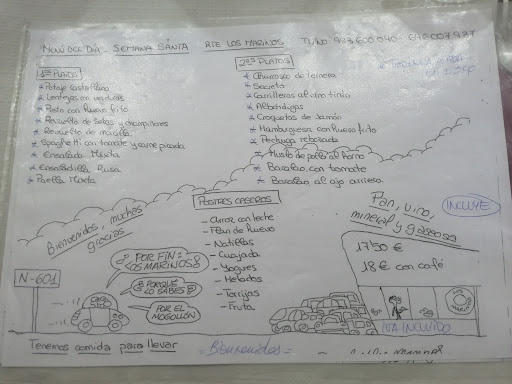 MENÚ DEL DÍA - SEMANA SANTA RTE LOS MARINOS
1os PLATOS
* Potaje
* Lentejas con verduras
* Pisto con huevo frito
* Revuelto de setas y champiñones
* Revuelto de morcilla
* Spaghetti con tomate y carne picada
* Ensalada Mixta
* Ensaladilla Rusa
* Paella Mixta
2os PLATOS
* Churrasco de ternera
* Secreto
* Carrilleras al vino tinto
* Albóndigas
* Croquetas de Jamón
* Hamburguesa con huevo frito
* Pechuga rebozada
* Muslo de pollo al horno
* Bacalao con tomate
* Bacalao al ajo arriero.
POSTRES CASEROS
- Arroz con leche
- Flan de huevo
- Natillas
- Cuajada
- Yogures
- Helados
- Torrijas
- Fruta
Pan, vino,
mineral y gaseosa
INCLUYE
17'50 €
18 € con café
IVA INCLUIDO
Bienvenidos, muchas
gracias
N-601
¡POR FIN:
LOS MARINOS!
¿PORQUE
LO SABES?
POR EL
MOGOLLÓN
Tenemos comida para llevar
= Bienvenidos =